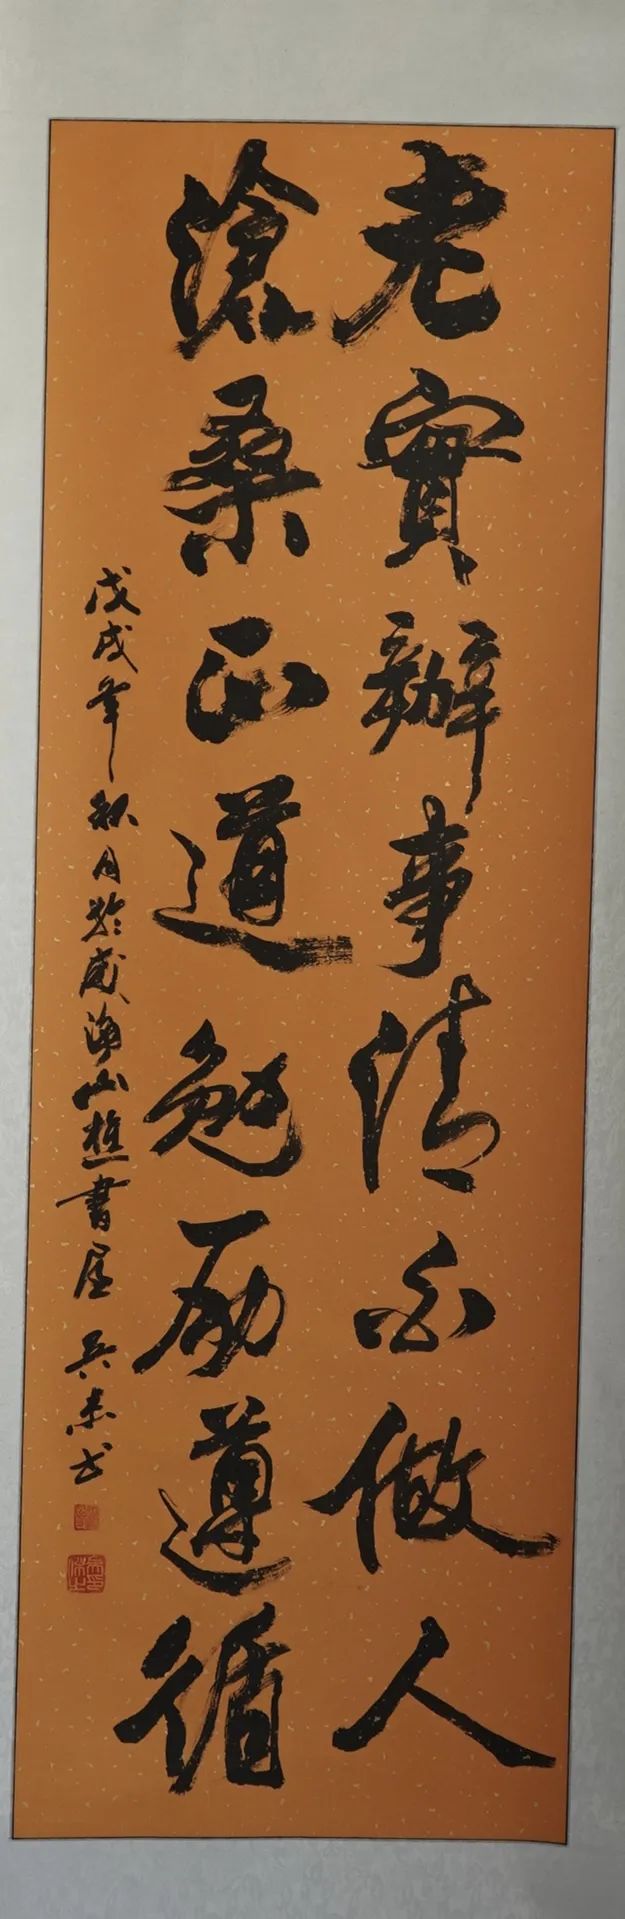 老實辦事清白做人
滄桑正道勉勵遵循
戊戌年秋月於威海山樵書屋 吳志武